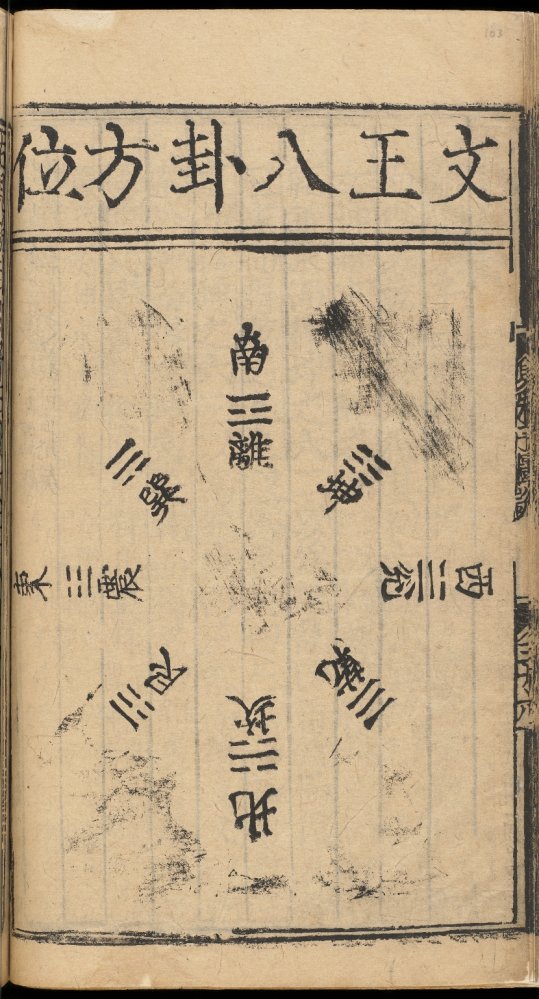 文王八卦方位
南
離
巽
東
震
艮
北
坎
乾
西
兌
坤
163